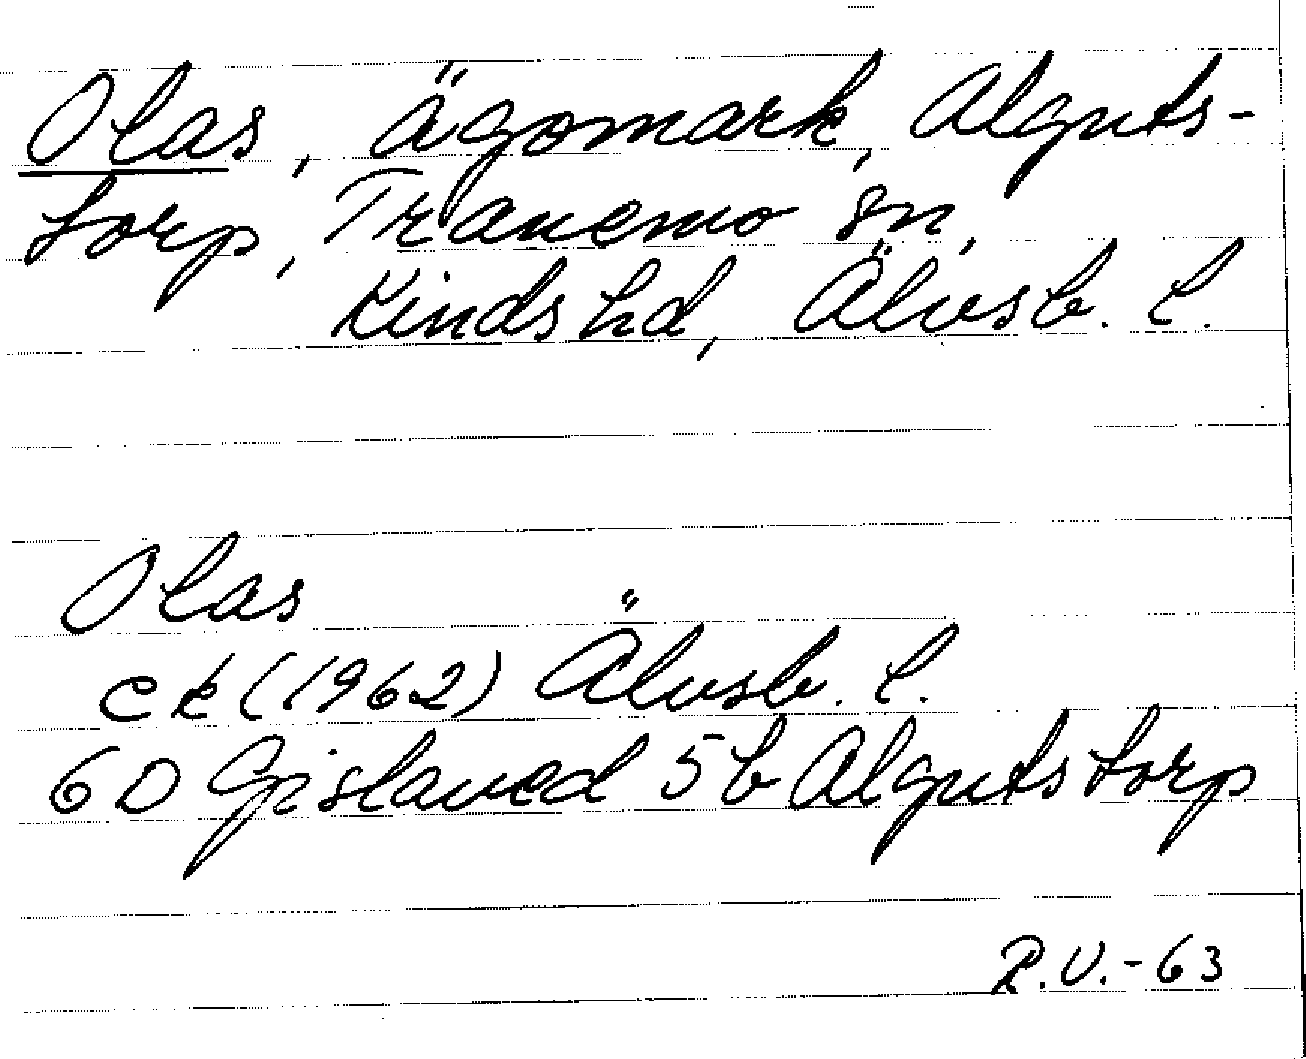 Olas, ägomark, Alguts-
torp, Tranemo sn,
Kinds hd, Älvsb. l.
Olas
ek (1962) Älvsb. l.
6D Gislaved 5b Algutstorp
R.V.-63